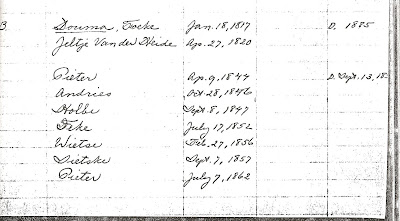 3 Douma, Focke Jan. 18, 1817 D. 1885
Jeltje Van der Heide Ap. 27, 1820
Pieter Ap. 9, 1844 D. Sept. 13, 18
Andries Oct. 28, 1846
Holbe Sept. 8, 1847
Feke July 17, 1852
Wietse Feb. 27, 1856
Dietske Sept. 7, 1857
Pieter July 7, 1862